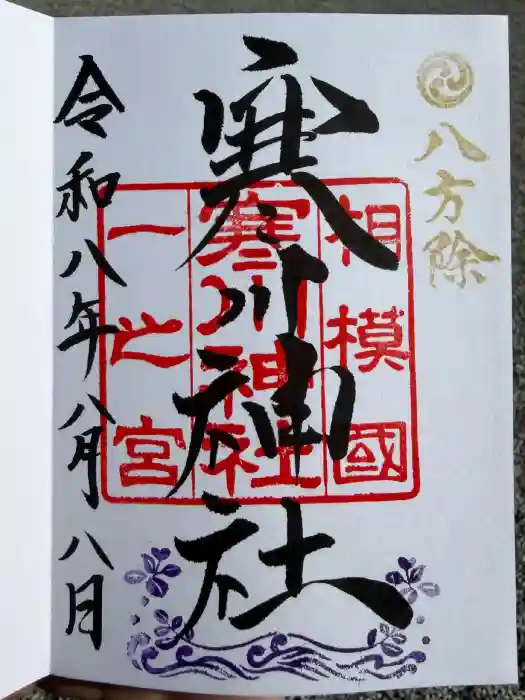 八方除
寒川神社
相模國
寒川神社
一之宮
令和八年八月八日